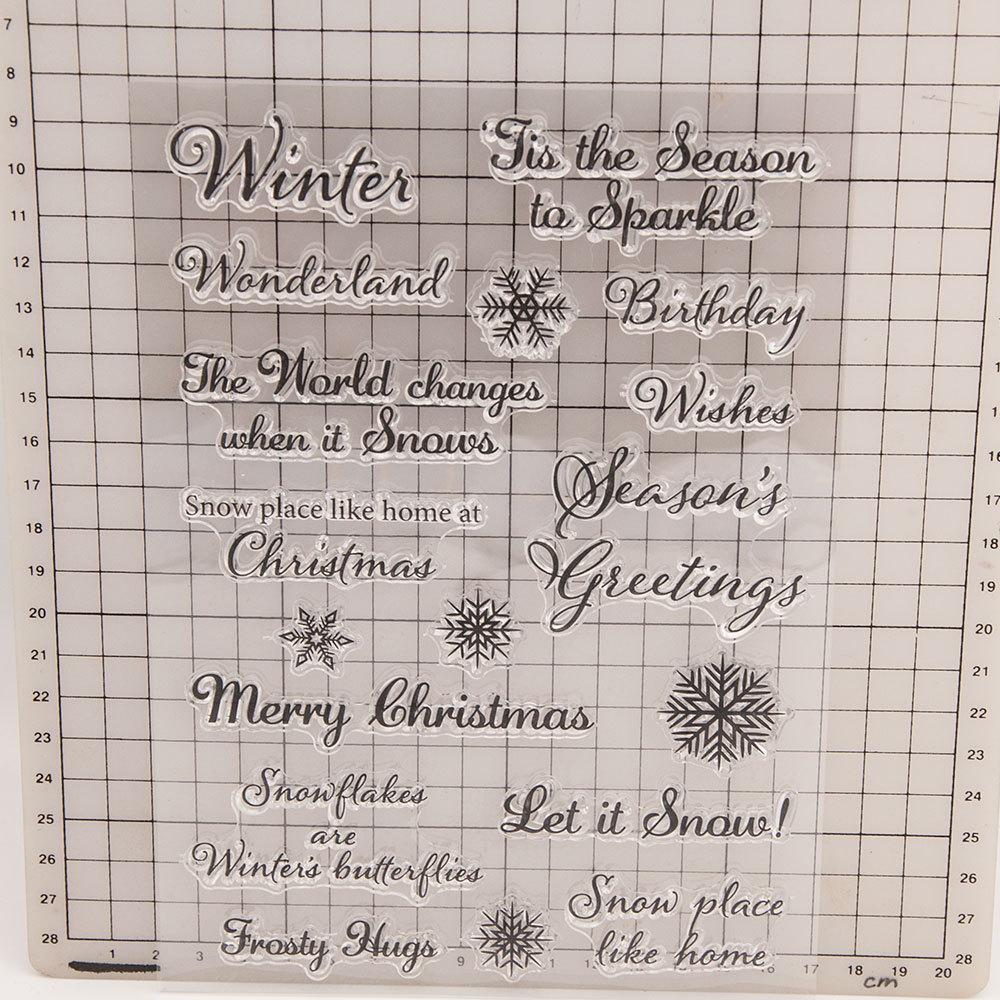 Winter
'Tis the Season
to Sparkle
Wonderland
Birthday
The World changes
when it Snows
Wishes
Season's
Greetings
Snow place like home at
Christmas
Merry Christmas
Snowflakes
are
Winter's butterflies
Let it Snow!
Frosty Hugs
Snow place
like home
7
8
9
10
11
12
13
14
15
16
17
18
19
20
21
22
23
24
25
26
27
28
1
2
3
9
17
18
19
20
cm
17
18
19
20
21
22
23
24
25
26
27
28